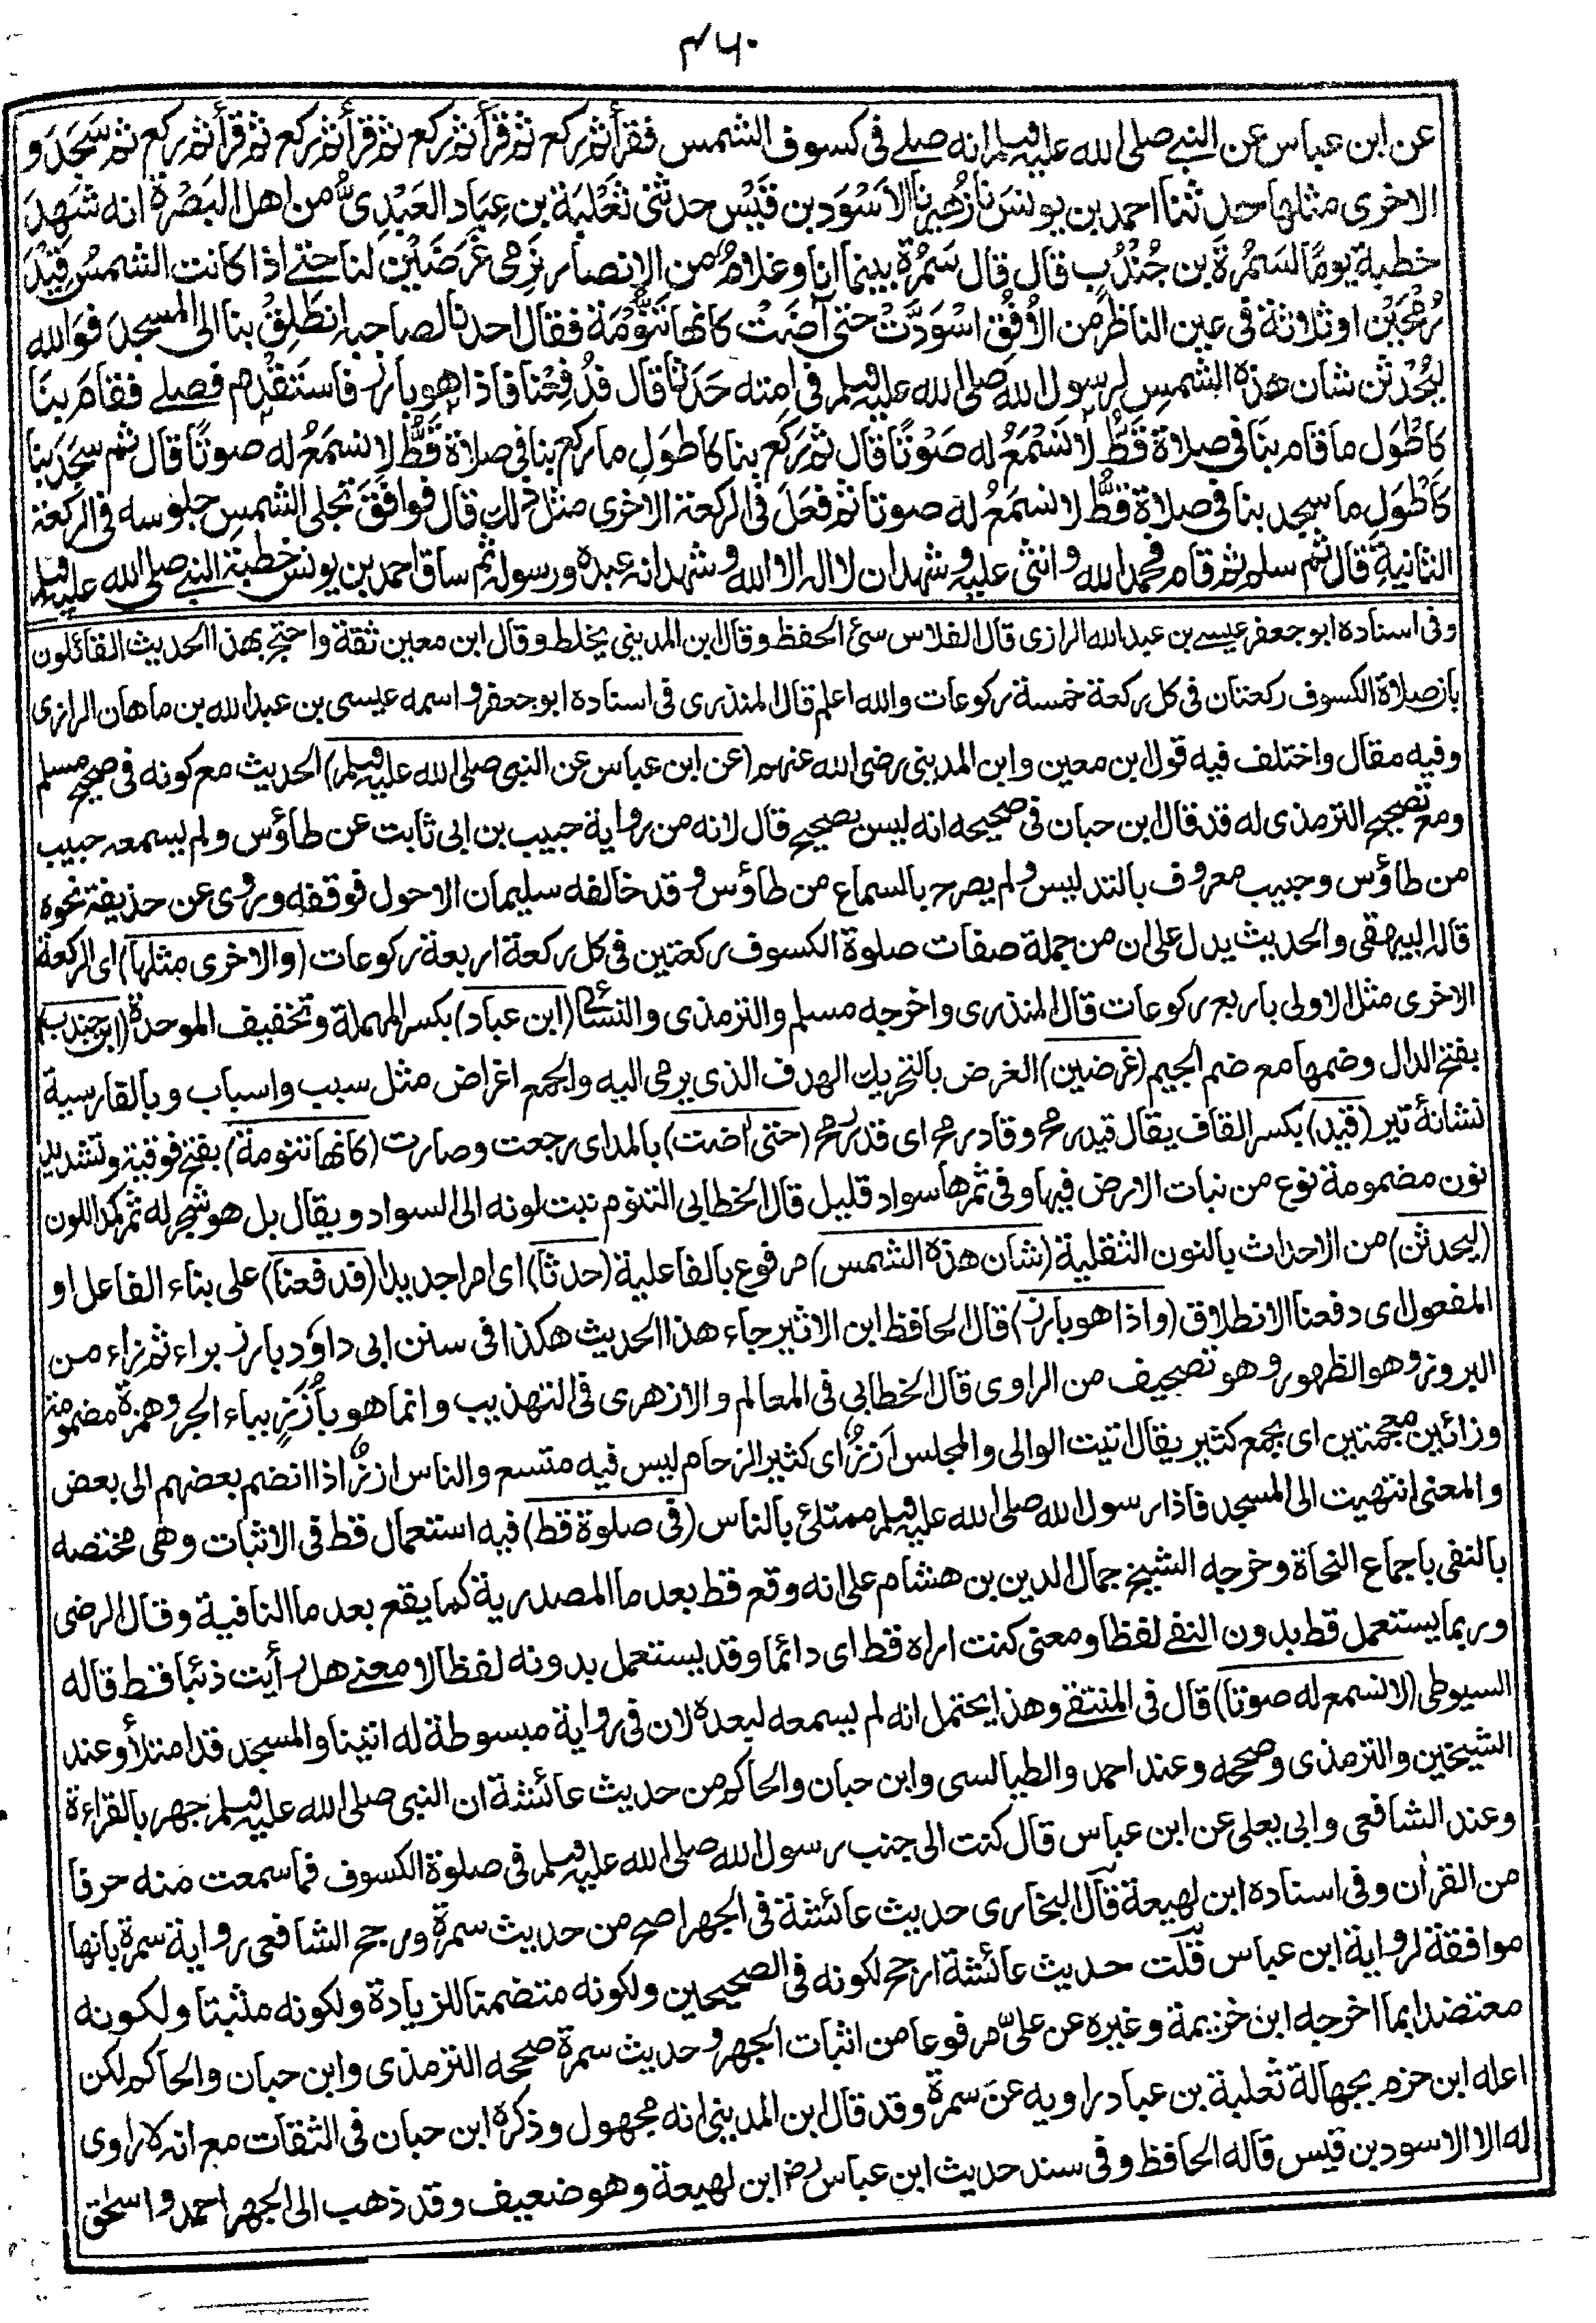 ٤٦٠
عن ابن عباس عن النبي صلى الله عليه وسلم انه صلى في كسوف الشمس فقرأ ثم ركع ثم قرأ ثم ركع ثم قرأ ثم ركع ثم قرأ ثم ركع ثم سَجَدَ و
الاخرى مثلها حدثنا احمد بن يونسَ نا زُهَيرٌ نا الاَسْوَد بن قَيْس حدثنى ثَعْلبَة بن عِبَاد العَبْدِىُّ من اهل البَصْرَة انه شَهِدَ
خطبةً يومًا لسَمُرةَ بن جُنْدُبٍ قال قال سَمُرَة بينما انا وغلامٌ من الانصار نَرْمى غَرَضَيْن لنا حتى اذا كانت الشمسُ قِيْدَ
رُمْحَيْن او ثلاثة فى عين الناظر من الاُفُقِ اسْوَدَّتْ حتى آضَتْ كانها تَنُّوْمَة فقال احدنا لصاحبه انطَلِقْ بنا الى المسجد فوالله
لَيُحْدِثن شان هذه الشمسِ لرسول الله صلى الله عليه وسلم فى امته حَدَثًا قال فدُفِعْنا فاذا هو بارز فاستَقْدَم فصلى فقامَ بِنَا
كاَطْوَل ما قام بنا فى صلاة قَطُّ لا نَسْمَعُ له صَوْتًا قال ثم رَكَع بنا كاطوَلِ ما ركع بنا فى صلاة قَطُّ لا نسمَعُ له صوتًا قال ثم سجَدَ بنا
كاَطْوَلِ ما سجد بنا فى صلاة قطُّ لا نسمَعُ له صوتا ثم فعَلَ فى الركعة الاخرى مثل ذلك قال فوافَقَ تجلى الشمسِ جلوسه فى الركعة
الثانيةِ قال ثم سلم ثم قام فحمد الله واثنى عليه وشهد ان لا اله الا الله وشهد انه عبده ورسوله ثم ساق احمد بن يونس خطبة النبي صلى الله عليه وسلم
وفى اسناده ابو جعفر عيسى بن عبد الله الرازى قال الفلاس سئ الحفظ وقال ابن المدينى يخلط وقال ابن معين ثقة واحتج بهذا الحديث القائلون
بان صلاة الكسوف ركعتان فى كل ركعة خمسة ركوعات والله اعلم قال المنذرى فى اسناده ابو جعفر واسمه عيسى بن عبد الله بن ماهان الرازى
وفيه مقال واختلف فيه قول ابن معين وابن المدينى رضى الله عنهم (عن ابن عباس عن النبى صلى الله عليه وسلم) الحديث مع كونه فى صحيح مسلم
ومع تصحيح الترمذى له قد قال ابن حبان فى صحيحه انه ليس بصحيح قال لانه من رواية حبيب بن ابى ثابت عن طاؤس ولم يسمعه حبيب
من طاؤس وحبيب معروف بالتدليس ولم يصرح بالسماع من طاؤس وقد خالفه سليمان الاحول فوقفه وروى عن حذيفة نحوه
قاله البيهقى والحديث يدل على ان من جملة صفات صلوة الكسوف ركعتين فى كل ركعة اربعة ركوعات (والاخرى مثلها) اى الركعة
الاخرى مثل الاولى باربع ركوعات قال المنذرى واخرجه مسلم والترمذى والنسائى (ابن عباد) بكسر المهملة وتخفيف الموحدة (ابن جندب)
بفتح الدال وضمها مع ضم الجيم (غرضين) الغرض بالتحريك الهدف الذى يرمى اليه والجمع اغراض مثل سبب واسباب وبالفارسية
نشانۂ تير (قيد) بكسر القاف يقال قيد رمح وقاد رمح اى قدر رمح (حتى اٰضت) بالمد اى رجعت وصارت (كانها تنومة) بفتح فوقية وتشديد
نون مضمومة نوع من نبات الارض فيها وفى ثمرها سواد قليل قال الخطابى التنوم نبت لونه الى السواد ويقال بل هو شجر له ثمر كمد اللون
(ليحدثن) من الاحداث بالنون الثقلية (شان هذه الشمس) مرفوع بالفاعلية (حدثا) اى امرا جديدا (فدفعنا) على بناء الفاعل او
المفعول اى دفعنا الانطلاق (واذا هو بارز) قال الحافظ ابن الاثير جاء هذا الحديث هكذا فى سنن ابى داؤد بارز براء ثم زاء من
البروز وهو الظهور وهو تصحيف من الراوى قال الخطابى فى المعالم والازهرى فى التهذيب وانما هو بأُزَزٍ بباء الجر وهمزة مضمومة
وزائين معجمتين اى بجمع كثير يقال اتيت الوالى والمجلس اَززٌ اى كثير الزحام ليس فيه متسع والناس ازز اذا انضم بعضهم الى بعض
والمعنى انتهيت الى المسجد فاذا رسول الله صلى الله عليه وسلم ممتلئ بالناس (فى صلوة قط) فيه استعمال قط فى الاثبات وهى مختصه
بالنفى باجماع النحاة وخرجه الشيخ جمال الدين بن هشام على انه وقع قط بعد ما المصدرية كما يقع بعد ما النافية وقال الرضى
وربما يستعمل قط بدون النفى لفظا ومعنى كنت اراه قط اى دائما وقد يستعمل بدونه لفظا لا معنى هل رأيت ذئبا قط قاله
السيوطى (لا نسمع له صوتا) قال فى المنتقى وهذا يحتمل انه لم يسمعه لبعده لان فى رواية مبسوطة له اتينا والمسجد قد امتلأ وعند
الشيخين والترمذى وصححه وعند احمد والطيالسى وابن حبان والحاكم من حديث عائشة ان النبى صلى الله عليه وسلم جهر بالقراءة
وعند الشافعى وابى يعلى عن ابن عباس قال كنت الى جنب رسول الله صلى الله عليه وسلم فى صلوة الكسوف فما سمعت منه حرفا
من القراٰن وفى اسناده ابن لهيعة قال البخارى حديث عائشة فى الجهر اصح من حديث سمرة ورجح الشافعى رواية سمرة بانها
موافقة لرواية ابن عباس قلت حديث عائشة ارجح لكونه فى الصحيحين ولكونه متضمنا للزيادة ولكونه مثبتا ولكونه
معتضدا بما اخرجه ابن خزيمة وغيره عن علىّ مرفوعا من اثبات الجهر وحديث سمرة صححه الترمذى وابن حبان والحاكم لكن
اعله ابن حزم بجهالة ثعلبة بن عباد راويه عن سمرة وقد قال ابن المدينى انه مجهول وذكره ابن حبان فى الثقات مع انه لا راوى
له الا الاسود بن قيس قاله الحافظ وفى سند حديث ابن عباس رض ابن لهيعة وهو ضعيف وقد ذهب الى الجهر احمد واسحٰق